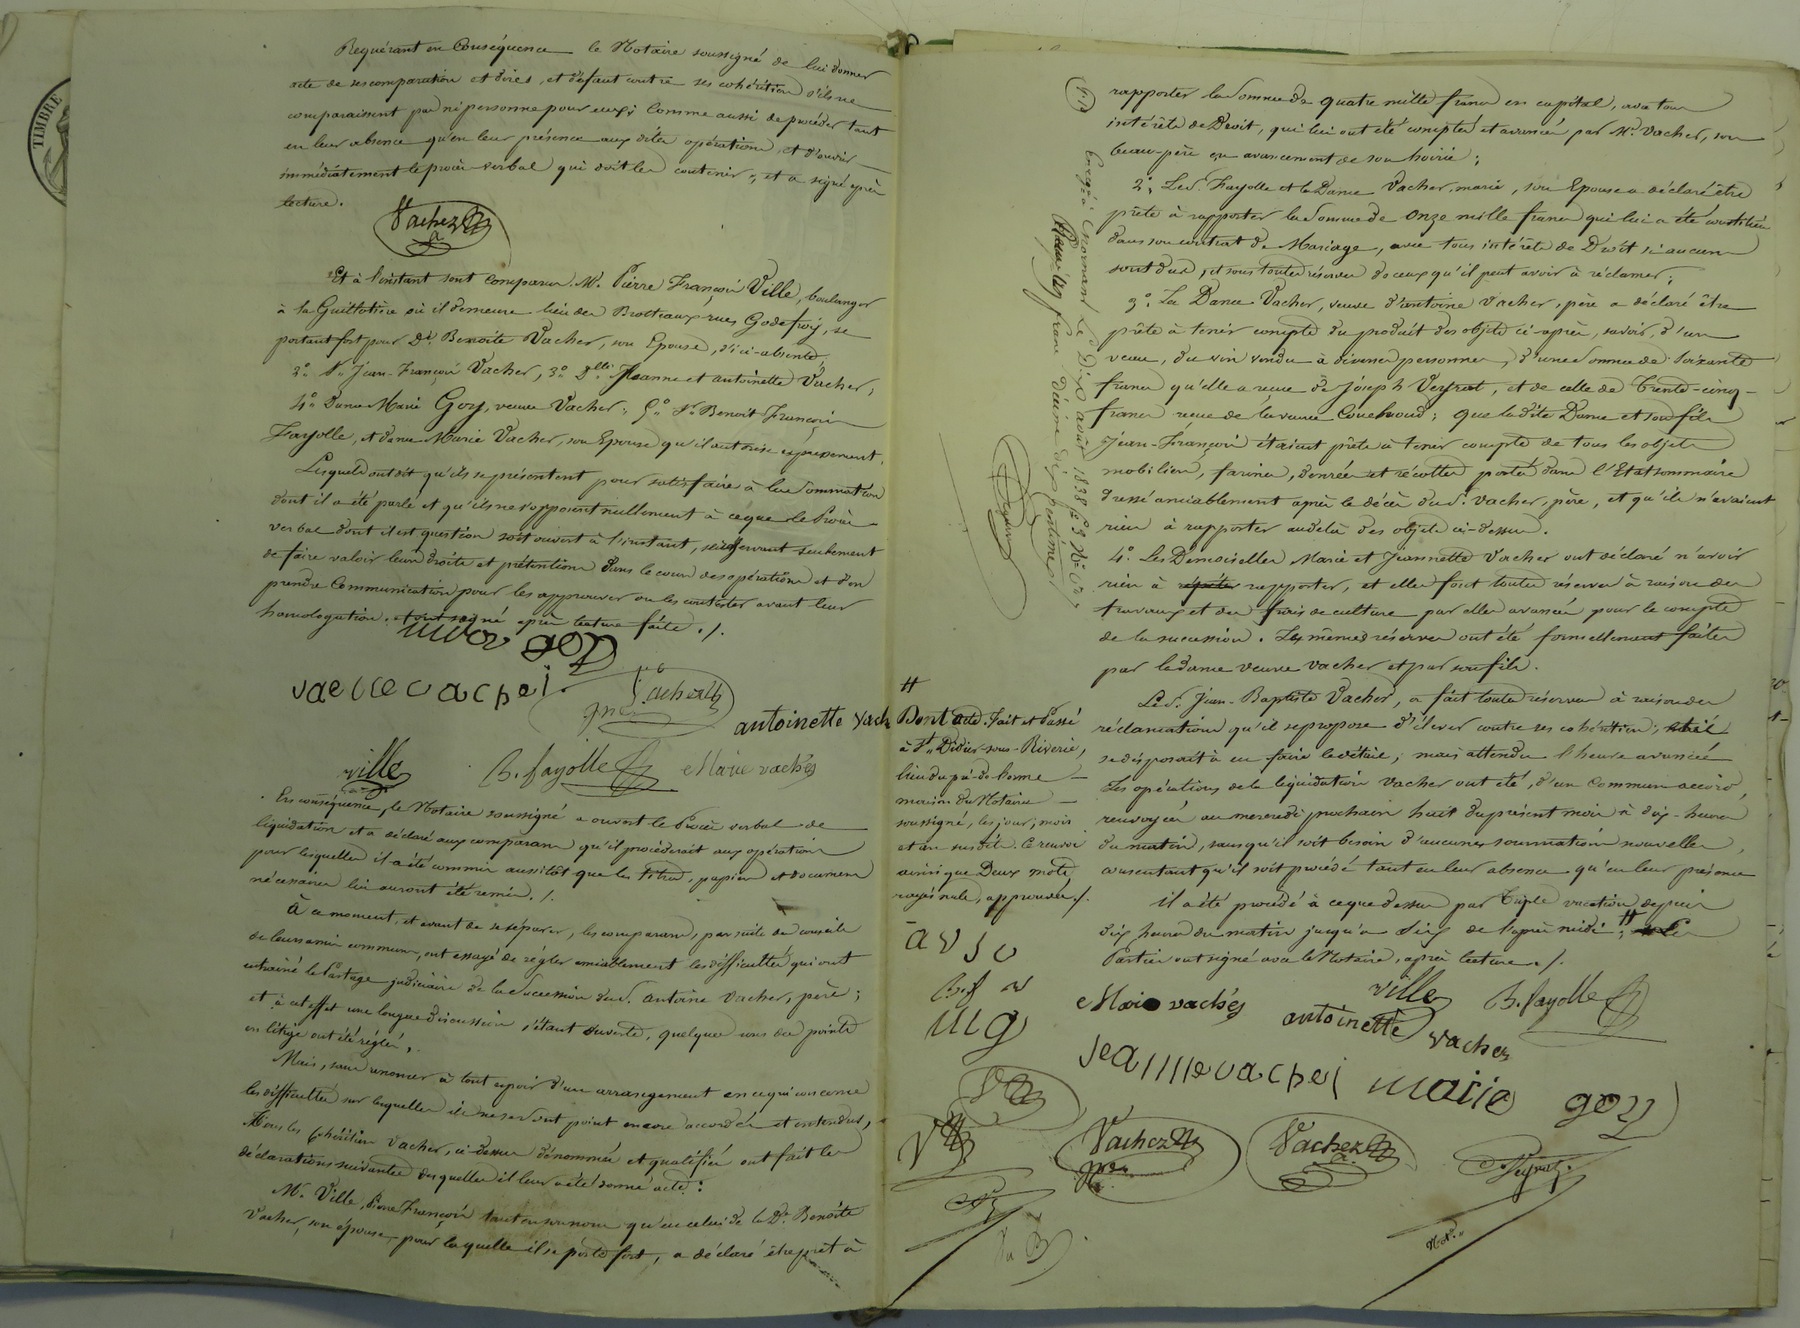 TIMBRE
Requérant en Conséquence le Notaire soussigné de lui donner
acte de ses comparution et dires, et défaut contre ses cohéritiers s'ils ne
comparaissent pas ni personne pour eux; Comme aussi de procéder tant
en leur absence qu'en leur présence aux dites opérations et d'ouvrir
immédiatement le procès-verbal qui doit les contenir, et a signé après
lecture.
Vacher
Et à l'instant sont comparus M. Pierre François Ville, boulanger
à la Guillotière où il demeure lieu des Brotteaux rue Godefroy, se
portant fort pour De. Benoite Vacher, son Epouse, d'ici-absente;
2.° Sr. Jean-François Vacher, 3.° Dlles Jeanne et antoinette Vacher;
4.° Dame Marie Goy, veuve Vacher; 5.° Sr. Benoit François
Fayolle, et dame Marie Vacher, son Epouse qu'il autorise expressement.
Lesquels ont dit qu'ils se présentent pour satisfaire à la Sommation
dont il a été parlé et qu'ils ne s'opposent nullement à ce que le Procès
verbal dont il est question soit ouvert à l'instant, se réservant seulement
de faire valoir leurs droits et prétentions dans le cours des opérations et d'en
prendre Communication pour les approuver ou les contester avant leur
homologation, et ont signé après lecture faite ./.
marie goy
vacher
Vacher
antoinette vach
ville
B. fayolle
Marie vachés
En conséquence, le Notaire soussigné a ouvert le Procès verbal de
liquidation et a déclaré aux comparans qu'il procéderait aux opérations
pour lesquelles il a été commis aussitôt que les titres, papiers et documens
nécessaires lui auront été remis ./.
À ce moment, et avant de se séparer, les comparans, par suite des conseils
de leurs amis communs, ont essayé de régler amiablement les difficultés qui ont
entrainé le Partage judiciaire de la Succession du S. Antoine Vacher, père;
et à cet effet une longue discussion s'étant ouverte, quelques uns des points
en litige ont été réglés,.
Mais, sans renoncer à tout espoir d'un arrangement en ce qui concerne
les difficultés sur lesquelles ils ne se sont point encore accordés et entendus,
Tous les Cohéritiers Vacher, ci-dessus dénommés et qualifiés ont fait les
déclarations suivantes desquelles il leur a été donné acte:
M. Ville, Pierre François tant en son nom qu'en celui de la De. Benoîte
Vacher, son épouse, pour laquelle il se porte fort, a déclaré être prêt à
rapporter la Somme de quatre mille francs en capital, avec tous
intérêts de Droit, qui lui ont été comptés et avancés par Mr. Vacher, son
beau-père en avancement de son hoirie;
2.° Le S. Fayolle et la Dame Vacher, marie, son Epouse a déclaré être
prête à rapporter la Somme de Onze mille francs qui lui a été constituée
dans son contrat de Mariage, avec tous intérêts de Droit si aucuns
sont dus, et sous toutes réserves de ceux qu'il peut avoir à réclamer;
3.° La Dame Vacher, veuve d'antoine Vacher, père a déclaré être
prête à tenir compte du produit des objets ci-après, savoir, d'un
veau, du vin vendu à diverses personnes, d'une Somme de Soixante
francs qu'elle a reçue de Joseph Veyrat, et de celle de Trente-cinq-
francs reçue de la veuve ; que la dite Dame et son fils
Jean-François étaient prêts à tenir compte de tous les objets
mobiliers, farines, denrées et récoltes portés dans l'Etat sommaire
dressé amiablement après le décès du S. Vacher, père, et qu'ils n'avaient
rien à rapporter au delà des objets ci-dessus.
4.° Les Demoiselles Marie et Jeannette Vacher ont déclaré n'avoir
rien à rapporter, et elles font toutes réserves à raison des
travaux et des frais de culture par elles avancés pour le compte
de la succession. Les mêmes réserves ont été formellement faites
par la dame veuve Vacher et par son fils.
Le S. Jean-Baptiste Vacher, a fait toutes réserves à raison des
réclamations qu'il se propose d'élever contre ses cohéritiers;
se disposait à en faire le détail; mais attendu l'heure avancée
Les opérations de la liquidation Vacher ont été, d'un Commun accord,
renvoyées au mercredi prochain huit du présent mois à dix-heures
du matin, sans qu'il soit besoin d'aucunes sommations nouvelles,
consentant qu'il soit procédé tant en leur absence qu'en leur présence
il a été procédé à ce que dessus par Triple vacation depuis
dix heures du matin jusqu'à Six de l'après midi; # Les
Parties ont signé avec le Notaire, après lecture ./.
Enregé. à Mornant Le Dix août 1838
#
Dont acte. Fait et Passé
à St. Didier-sous-Riverie,
lieu du
maison du Notaire
soussigné, les jour, mois
et an susdits. Ce renvoi
ainsi que Deux mots
rayés nuls, approuvés ./.
a v
B. f
m g
Marie vachés
antoinette vacher
ville
B. fayolle
jeanne vacher
marie goy
Vacher
Vacher
Peyrat
Notre.